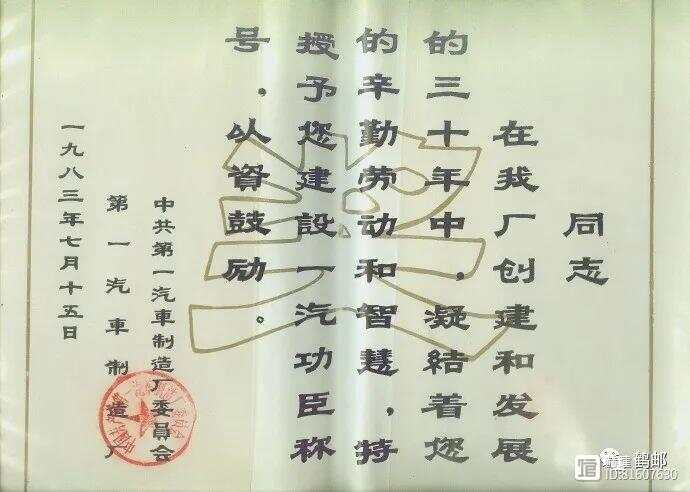 同志
在我厂创建和发展
的三十年中，凝结着您
的辛勤劳动和智慧，特
授予您建設一汽功臣称
号．以資鼓励。
中共第一汽車制造厂委員会
第一汽車制造厂
一九八三年七月十五日
奖
鹤邮
ID:81607630